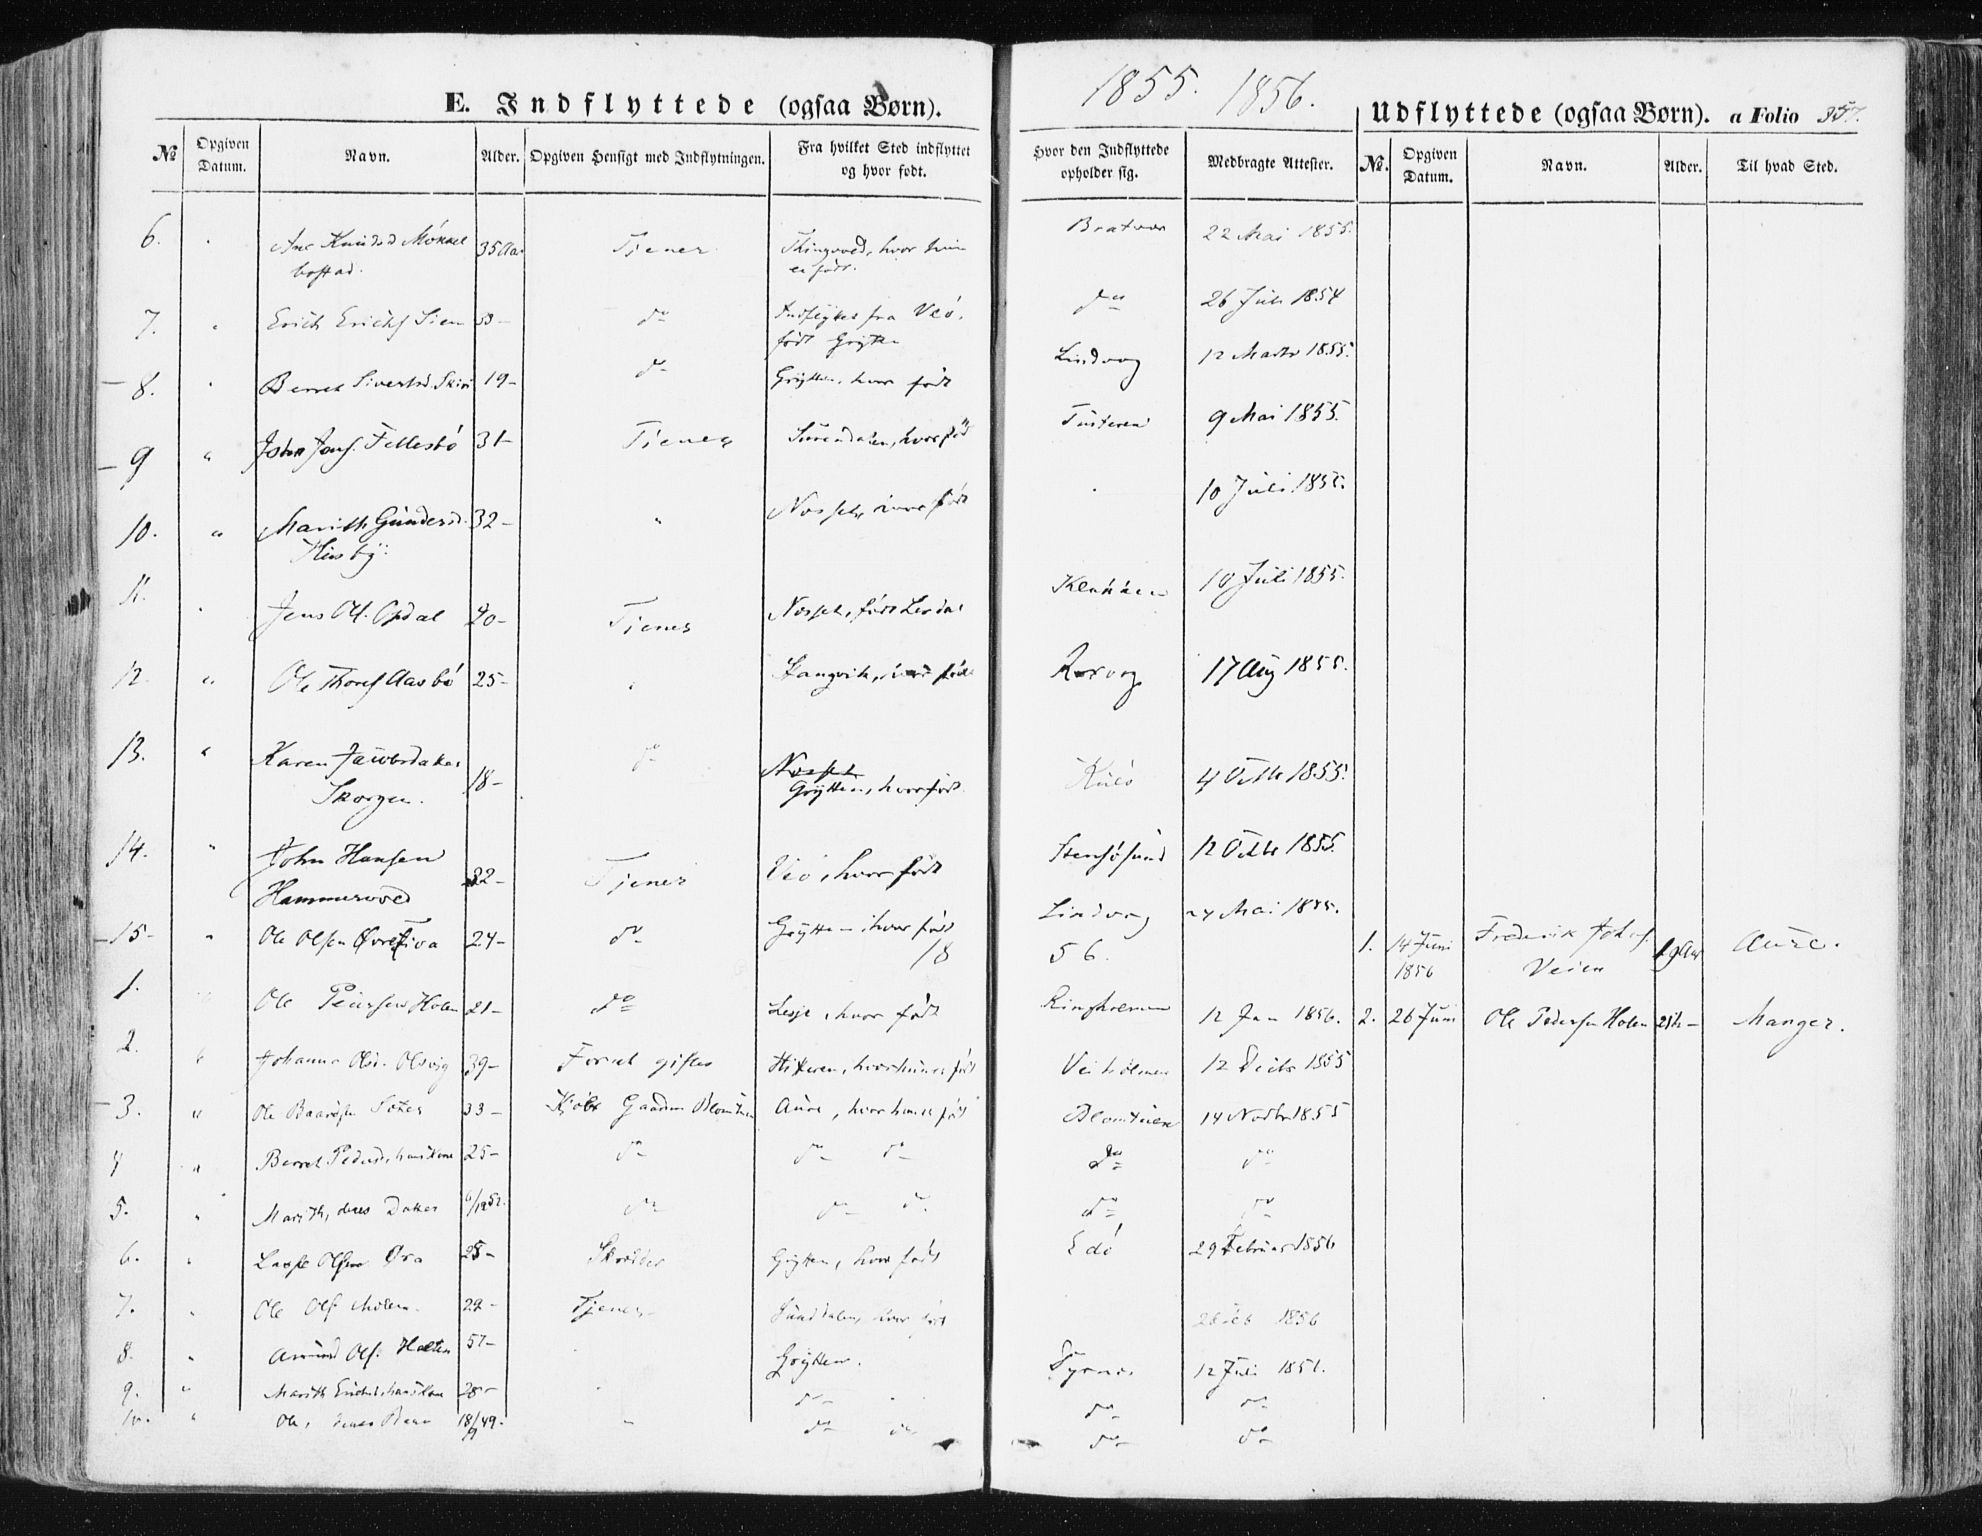 1855. 1856.
E. Indflyttede (ogsaa Børn).
Udflyttede (ogsaa Børn). a Folio 357.
№ Opgiven Datum. Navn. Alder. Opgiven Hensigt med Indflytningen. Fra hvilket Sted indflyttet og hvor født. Hvor den Indflyttede opholder sig. Medbragte Attester. №. Opgiven Datum. Navn. Alder. Til hvad Sted.
6. Ane Knudsd 35 Aar Tjener Thingvold, hvor hun Bratvær 22 Mai 1855.
bostad. er født.
7. " Erich Erichs. 53 - do Indflyttet fra Veö, do 26 Juli 1854
født Grytten
8. " Berret Sivertsd. 19 - do Grytten, hvor født Lindvog 12 Marts 1855.
9 " John Fellesbö 31 - Tjener Surendalen, hvor født Tusteren 9 Mai 1855.
10. " Marith Gundersd. 32 - " Nosset, hvor født 10 Juli 1855.
Husby
11. " Jens Ols. Opdal 40 - Tjener Nosset, født 10 Juli 1855.
12. " Ole Thores. Aasbö 25 - " Stangvik, hvor født Korvog 17 Aug 1855.
13. " Karen Jacobsdatter 18 - do Nosset
Skorgen. Grytten, hvor født Kulö 4 Octbr 1855.
14. " John Hansen 32 - Tjener Veö, hvor født Stensösund 12 Octbr 1855.
Hammervold
15 - " Ole Olsen Øvre 24 - do Grytten hvor født Lindvog Mai 1855.
18 56.
1. 14 Juni 1856 Frederik Johs. Veien 19 Aar Aure.
1. " Ole Pedersen Holen 21 - do Lesje, hvor født Ringholmen 12 Jan 1856.
2. 26 Juni Ole Pedersen Holen 21 - Manger.
2. " Johanna Olsd. Olsvig 39 - Forat giftes Hitteren, hvor hun er født Veiholmen 12 Decbr 1855
3. " Ole Baardsen 33 - Kjöbt Gaarden Aure, hvor han er født 14 Novbr 1855
4 " Berret Pedersd, hans Kone 25 - do do do do do
5. " Marith, deres Datter do do do do do
6. " Lasse Olsen Øra 25 - Skrædder Grytten, hvor født Edö 29 Februar 1856
7. " Ole Ols. 22 - Tjener Sunddalen, hvor født 1856
8. " Amund Ols. Holten 57 - Grytten. 12 Juli
9. " Marith Erichsd, hans Kone 28 - do do do
10. " Ole, deres Barn 18/9 49. " do do do do